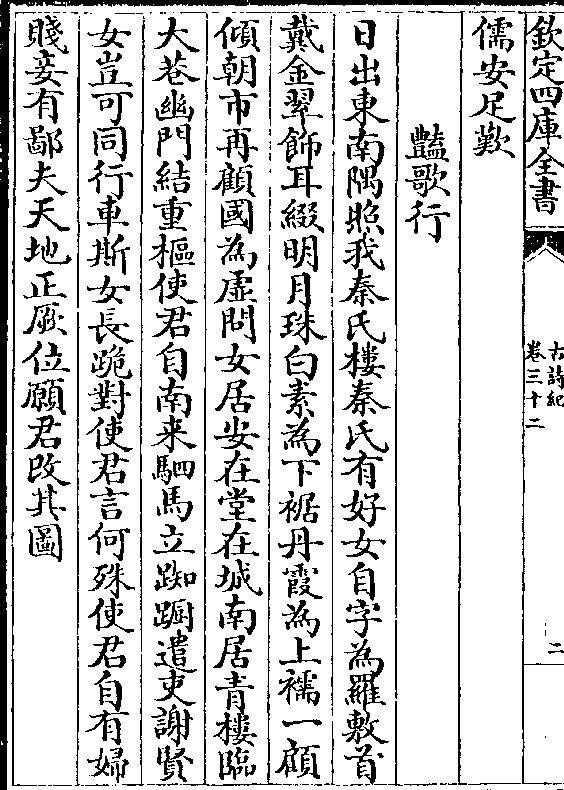 欽定四庫全書
古詩紀
卷三十二
二
儒安足歎
豔歌行
日出東南隅照我秦氏樓秦氏有好女自字為羅敷首
戴金翠飾耳綴明月珠白素為下裾丹霞為上襦一顧
傾朝市再顧國為虛問女居安在堂在城南居青樓臨
大巷幽門結重樞使君自南来駟馬立踟蹰遣吏謝賢
女豈可同行車斯女長跪對使君言何殊使君自有婦
賤妾有鄙夫天地正厥位願君改其圖